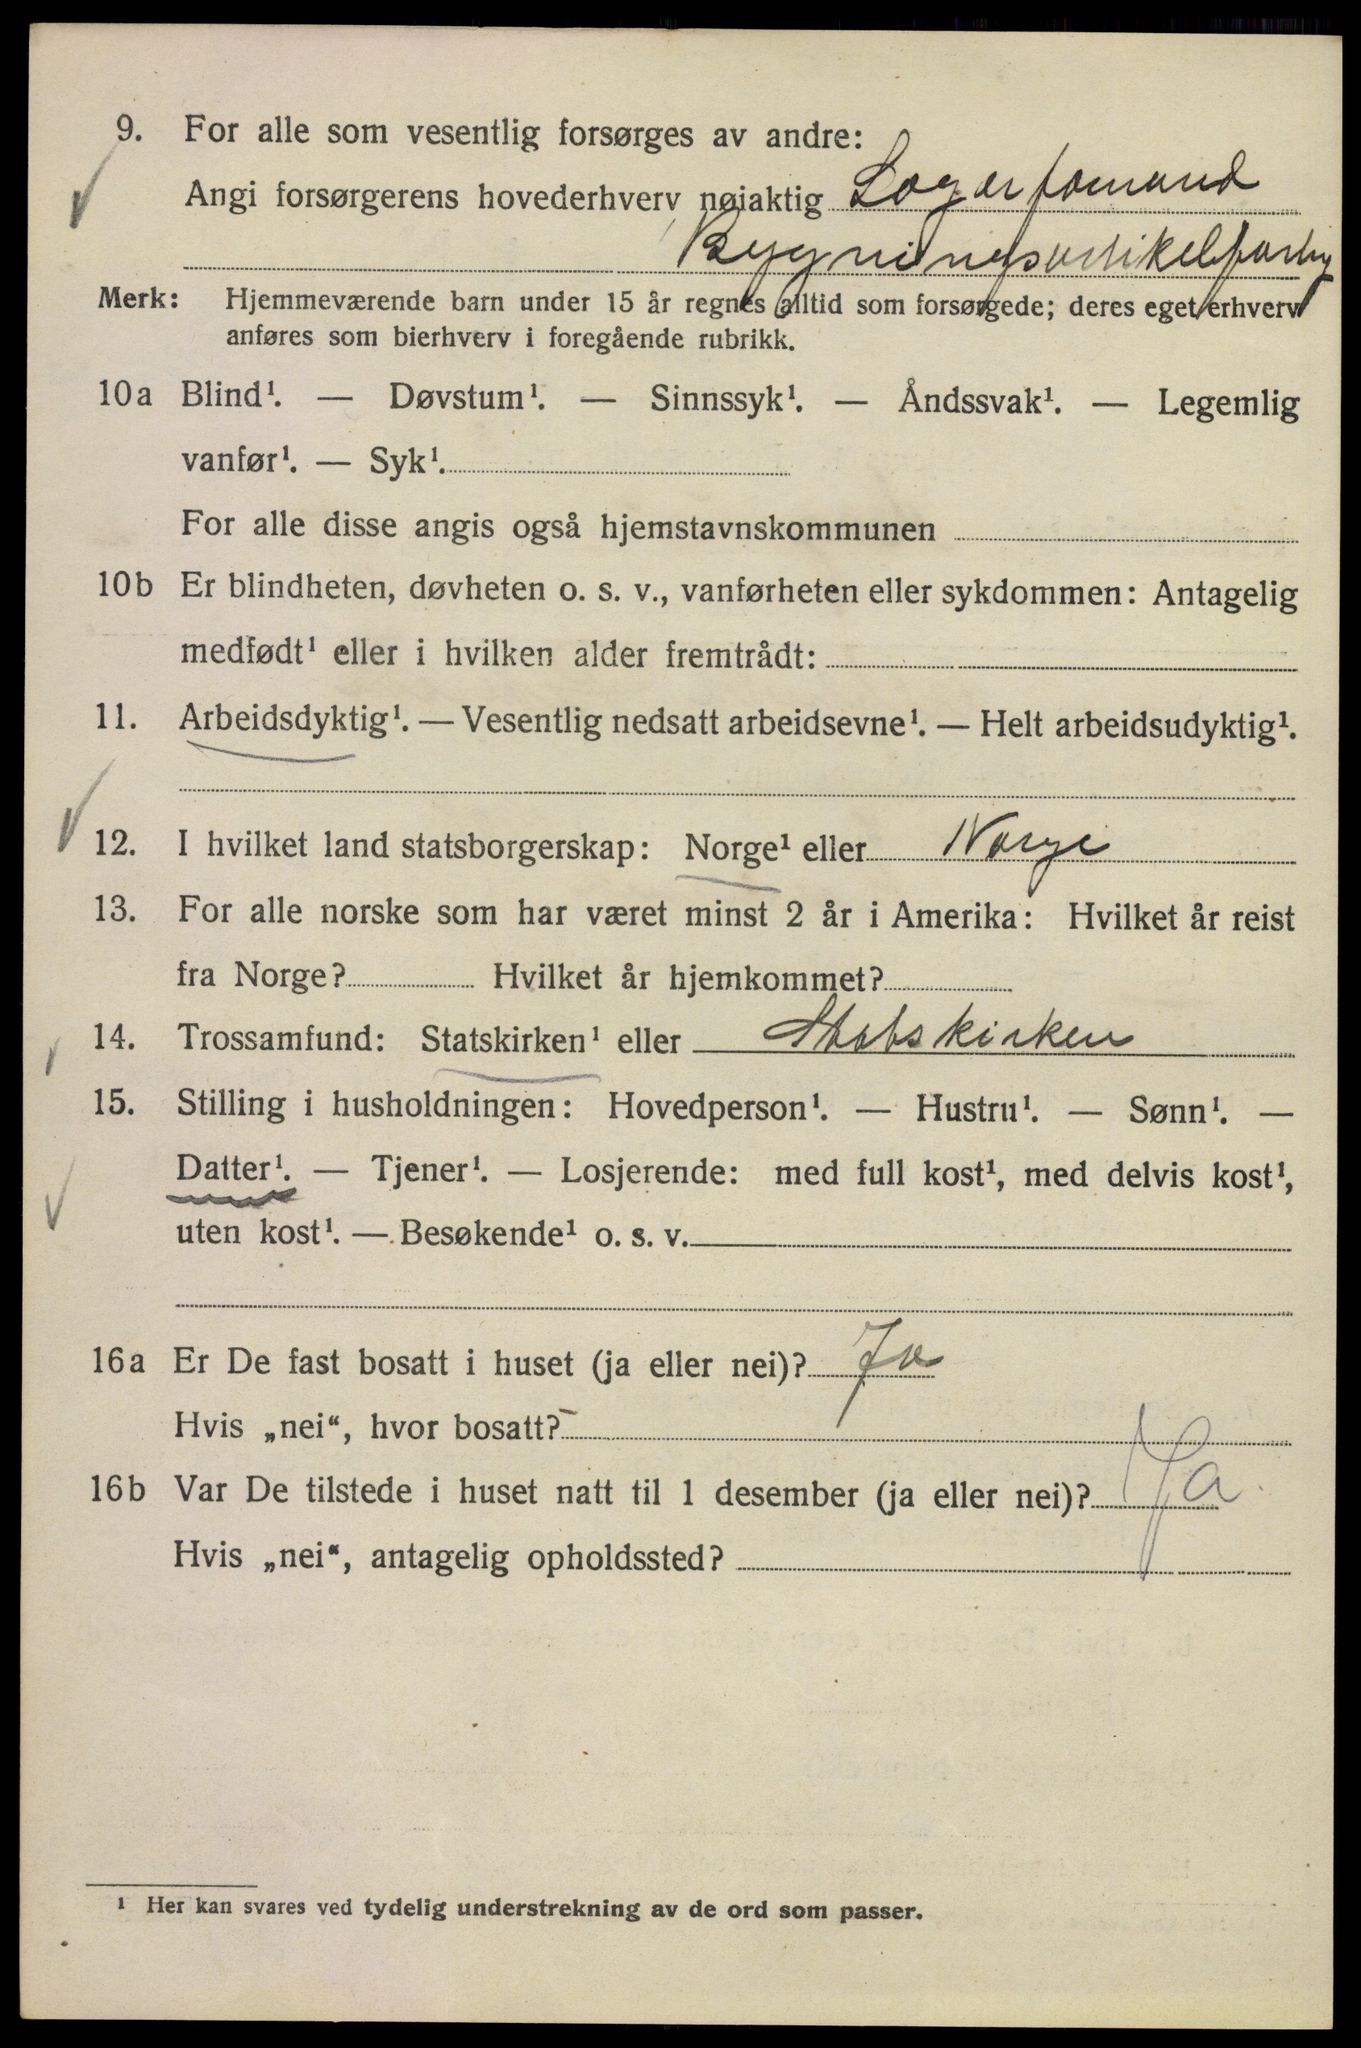 9. For alle som vesentlig forsørges av andre:
Angi forsørgerens hovederhverv nøiaktig Lagerformand
Bygningsartikelforbg
Merk: Hjemmeværende barn under 15 år regnes alltid som forsørgede; deres eget erhverv
anføres som bierhverv i foregående rubrikk.
10a Blind¹. — Døvstum¹. — Sinnssyk¹. — Åndssvak¹. — Legemlig
vanfør¹. — Syk¹.
For alle disse angis også hjemstavnskommunen
10b Er blindheten, døvheten o. s. v., vanførheten eller sykdommen: Antagelig
medfødt¹ eller i hvilken alder fremtrådt:
11. Arbeidsdyktig¹. — Vesentlig nedsatt arbeidsevne¹. — Helt arbeidsudyktig¹.
12. I hvilket land statsborgerskap: Norge¹ eller Norge
13. For alle norske som har været minst 2 år i Amerika: Hvilket år reist
fra Norge? Hvilket år hjemkommet?
14. Trossamfund: Statskirken¹ eller Statskirken
15. Stilling i husholdningen: Hovedperson¹. — Hustru¹. — Sønn¹. —
Datter¹. — Tjener¹. — Losjerende: med full kost¹, med delvis kost¹,
uten kost¹. — Besøkende¹ o. s. v.
16a Er De fast bosatt i huset (ja eller nei)? Ja
Hvis „nei“, hvor bosatt? –
16b Var De tilstede i huset natt til 1 desember (ja eller nei)? Ja.
Hvis „nei“, antagelig opholdssted?
¹ Her kan svares ved tydelig understrekning av de ord som passer.